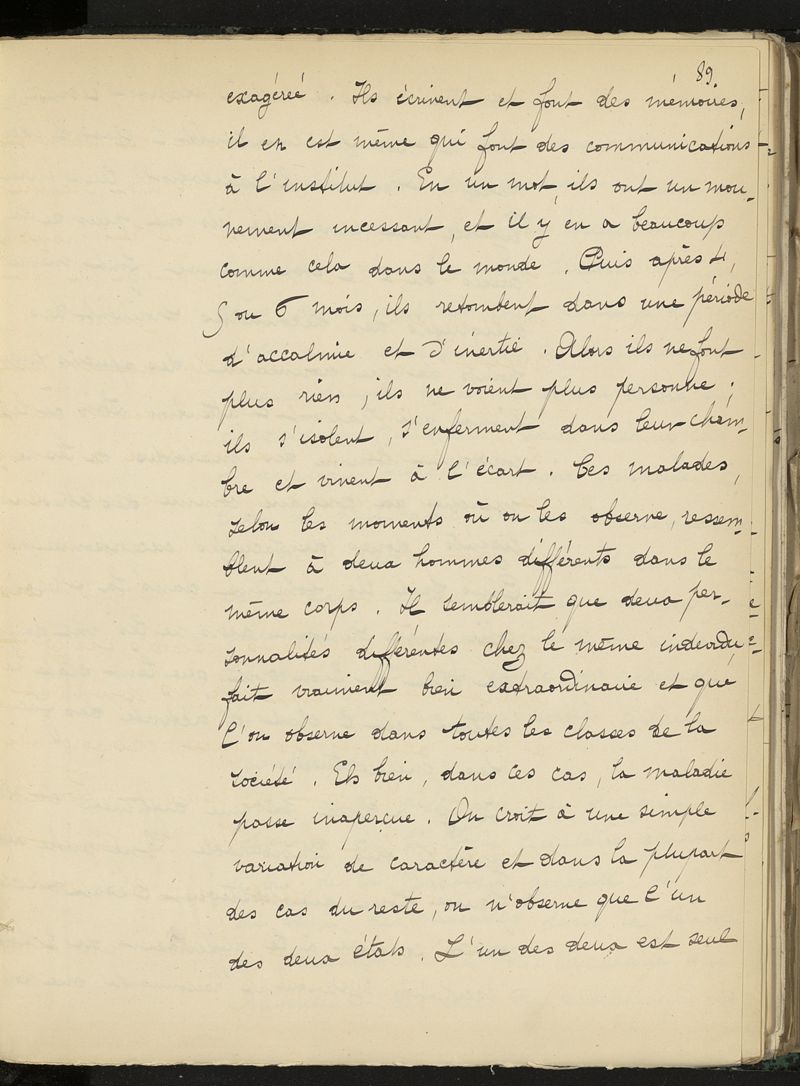 89.
exagéreé. Ils écrivent et font des mémoires,
il en est même qui font des communications
à l'institut. En un mot, ils ont un mou-
vement incessant, et il y en a beaucoup
comme cela dans le monde. Puis après 4,
5 ou 6 mois, ils retombent dans une période
d'accalmie et d'inertie. Alors ils ne font
plus rien, ils ne voient plus personne.
ils s'isolent, s'enferment dans leur cham-
bre et vivent à l'écart. Ces malades,
selon les moments où on les observe, ressem-
blent à deux hommes différents dans le
même corps. Il semblerait que deux per-
sonnalités différentes chez le même individu,
fait vraiment bien extraordinaire et que
l'on observe dans toutes les classes de la
société. Eh bien, dans ces cas, la maladie
passe inaperçue. On croit à une simple
variation de caractère et dans la plupart
des cas du reste, on n'observe que l'un
des deux états. L'un des deux est seul